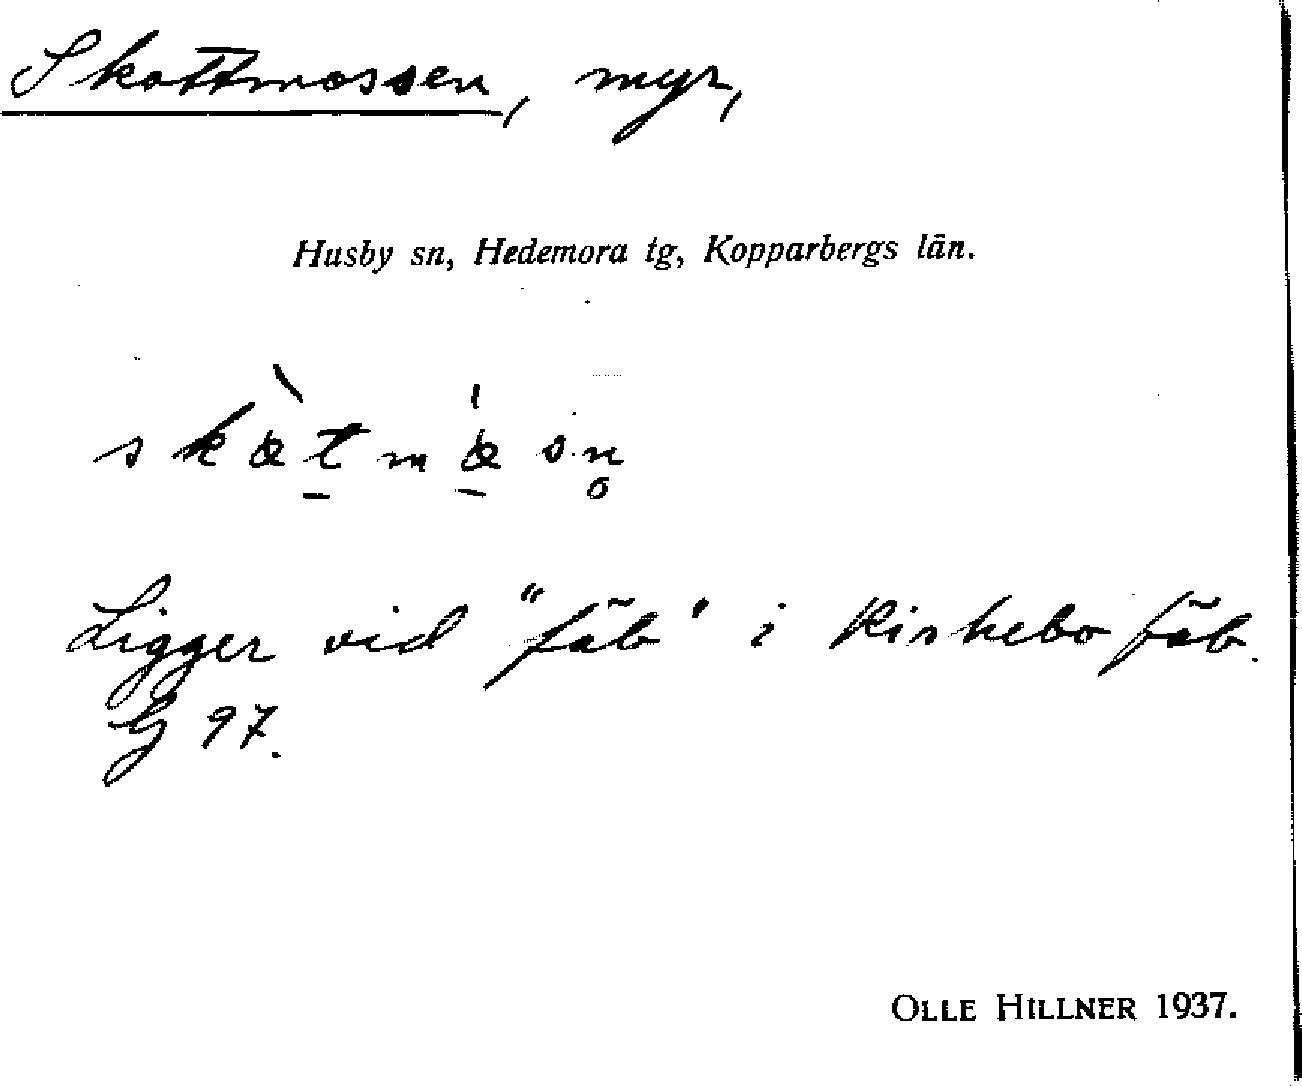 Skottmossen, myr,
Husby sn, Hedemora tg, Kopparbergs län.
Ligger vid "fäb" i Kirkebo fäb.
G 97.
OLLE HILLNER 1937.